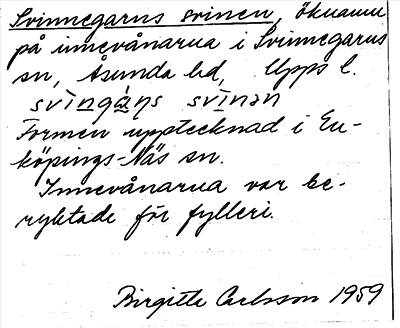 Svinnegarns svinen, öknamn
på innevånarna i Svinnegarns
sn, Åsunda hd, Upps l.
svìngàṇs svìnən
Formen upptecknad i En-
köpings-Näs sn.
Innevånarna var be-
ryktade för fylleri.
Birgitte Carlsson 1959